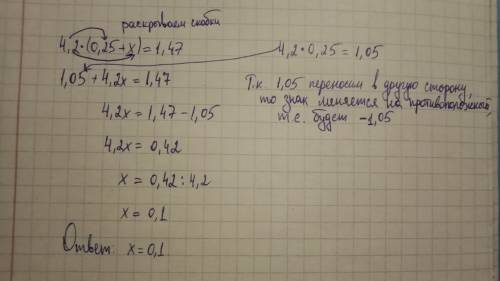 раскрываем скобки
4,2·(0,25+x)=1,47
4,2·0,25=1,05
1,05+4,2x=1,47
Т.к. 1,05 переносим в другую сторону,
то знак меняется на противоположный,
т.е. будет -1,05
4,2x=1,47-1,05
4,2x=0,42
x=0,42:4,2
x=0,1
Ответ: x=0,1